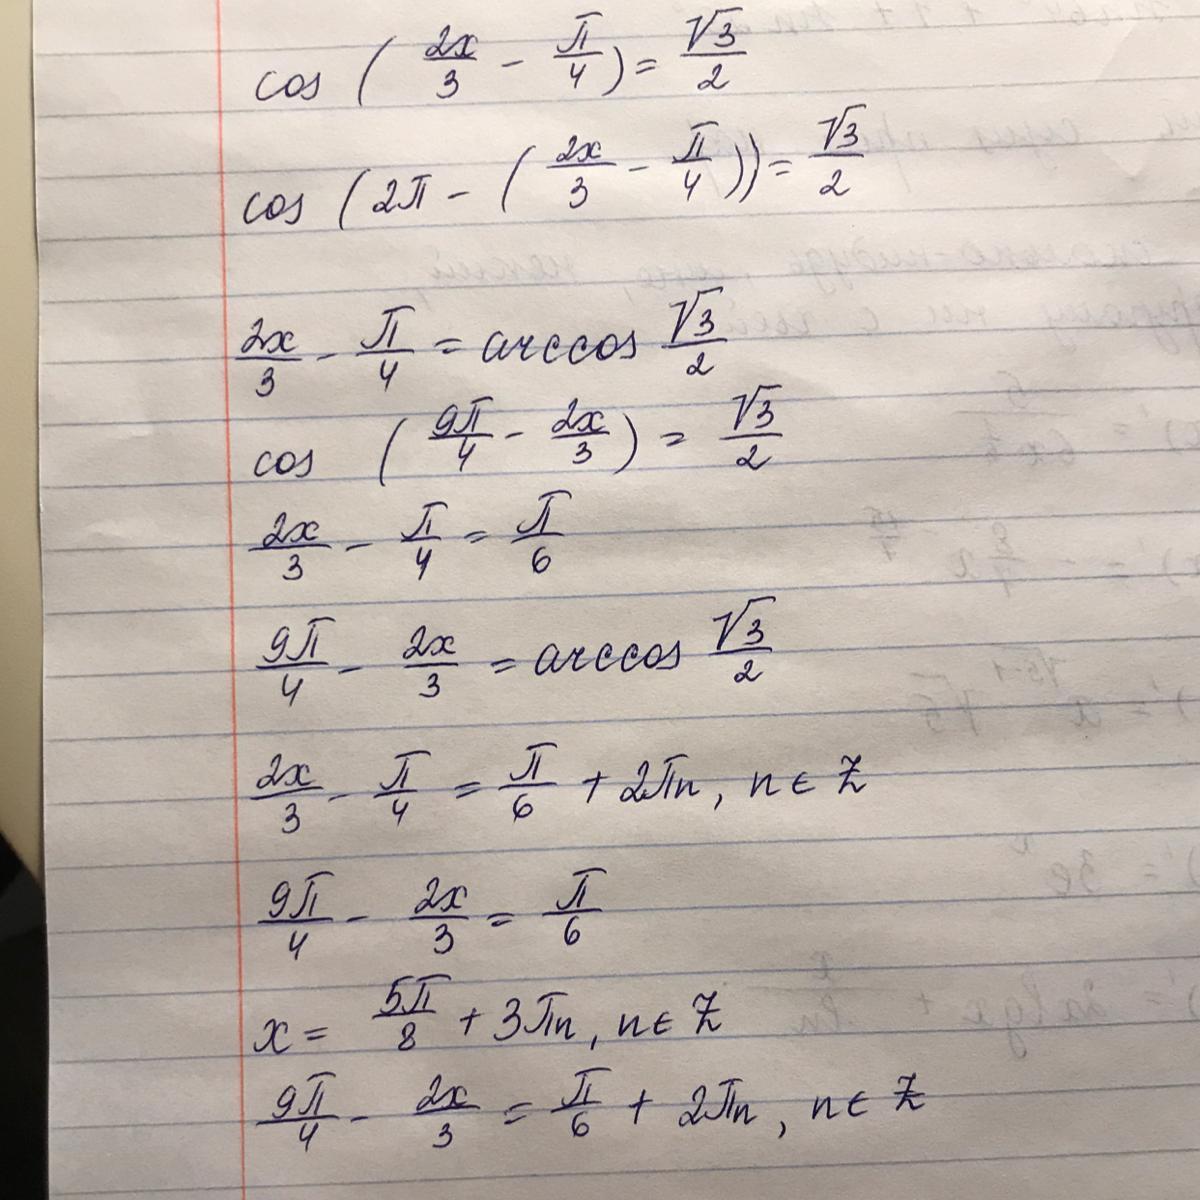 cos ( 2x/3 - π/4 ) = √3/2
cos (2π - ( 2x/3 - π/4 )) = √3/2
2x/3 - π/4 = arccos √3/2
cos ( 9π/4 - 2x/3 ) = √3/2
2x/3 - π/4 = π/6
9π/4 - 2x/3 = arccos √3/2
2x/3 - π/4 = π/6 + 2πn, n ∈ Z
9π/4 - 2x/3 = π/6
x = 5π/8 + 3πn, n ∈ Z
9π/4 - 2x/3 = π/6 + 2πn, n ∈ Z